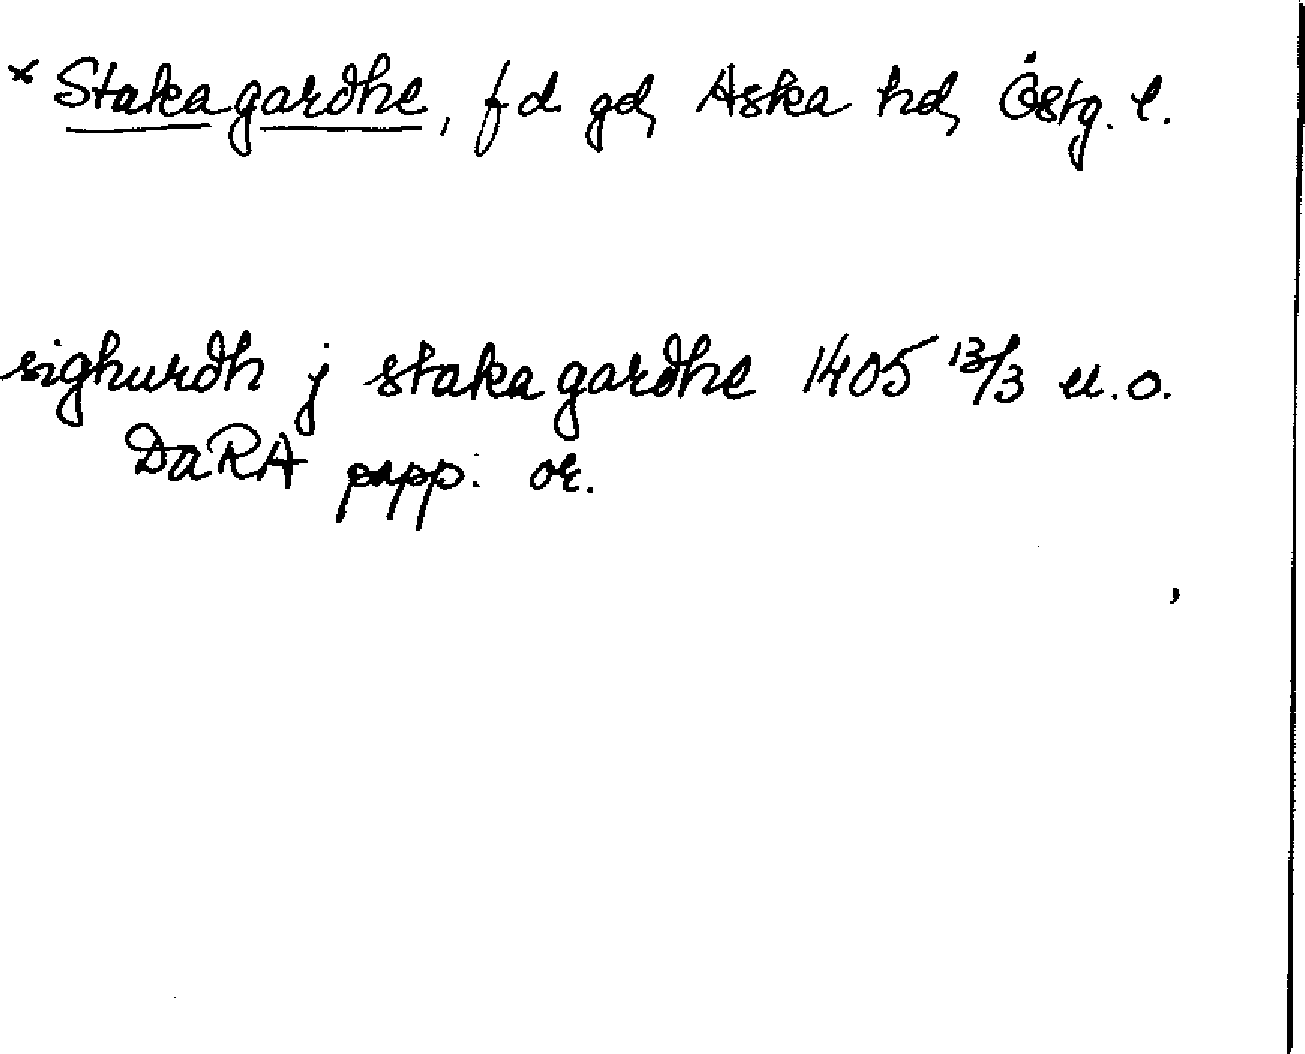 × Stakagardhe, f d gd, Aska hd, Östg. l.
sighurdh j stakagardhe 1405 13/3 u.o.
DaRA papp. or.